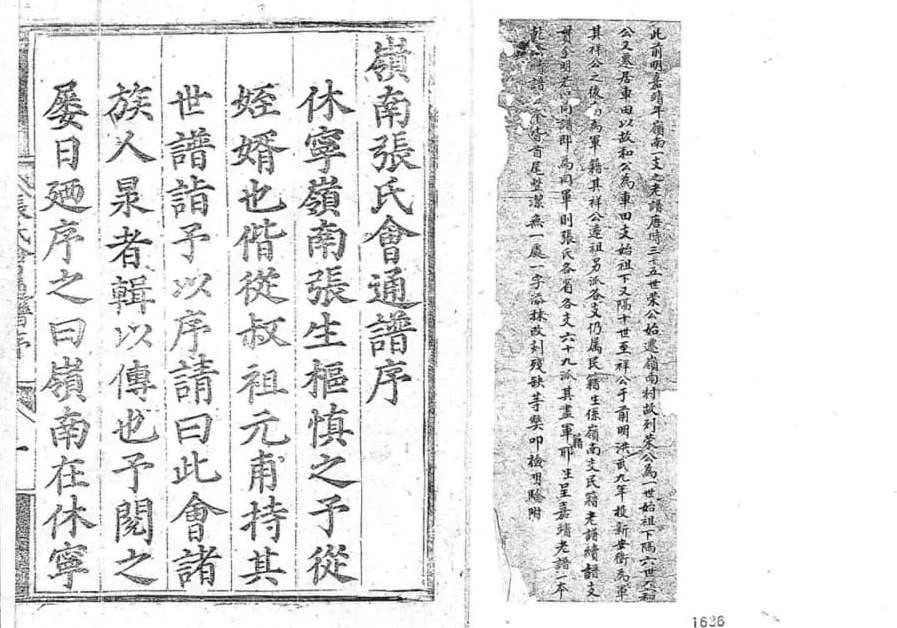 此前明嘉靖年嶺南一支之老譜唐時三十五世荣公始遷嶺南村故列荣公為一世始祖下隔六世大和
公又遷居車田以故和公為車田支始祖下又隔十世至祥公于前明洪武九年投新安衛為軍
其祥公之後為軍籍其祥公遠祖另派各支仍属民籍生係嶺南支民籍老譜續譜文
同譜即為同軍則張氏各省各支六十九派其盡軍籍耶生呈嘉靖老譜一本
譜首尾整潔無一處一字添抹改刻殘缺等獘叩檢明驗附
嶺南張氏會通譜序
休寧嶺南張生樞慎之予從
姪婿也偕從叔祖元甫持其
世譜詣予以序請曰此會諸
族人杲者輯以傳也予閱之
屡日廼序之曰嶺南在休寧
1626